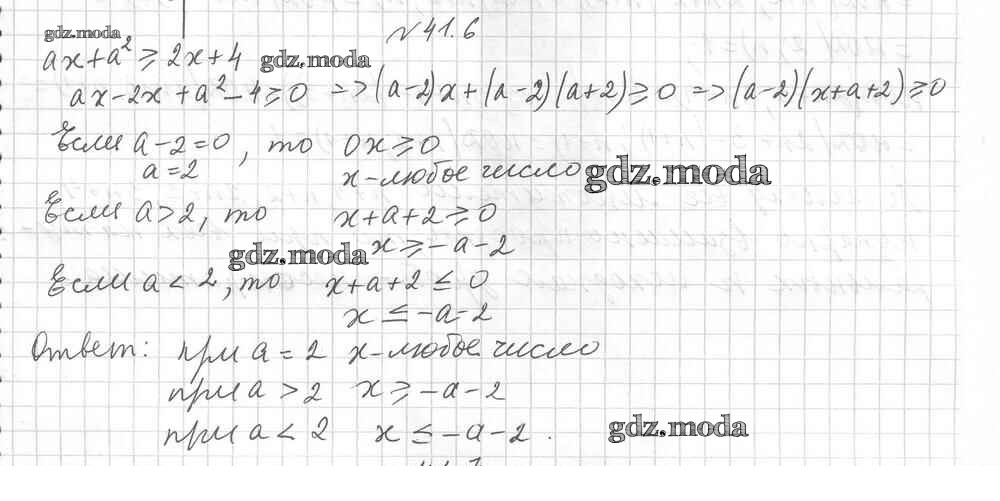 gdz.moda № 41.6
ax+a² ≥ 2x+4 gdz.moda
ax-2x+a²-4≥0 => (a-2)x+(a-2)(a+2)≥0 => (a-2)(x+a+2)≥0
Если a-2=0, то 0x≥0
a=2 x-любое число gdz.moda
Если a>2, то x+a+2≥0
gdz.moda x≥-a-2
Если a<2, то x+a+2≤0
x≤-a-2
Ответ: при a=2 x-любое число
при a>2 x≥-a-2
при a<2 x≤-a-2. gdz.moda